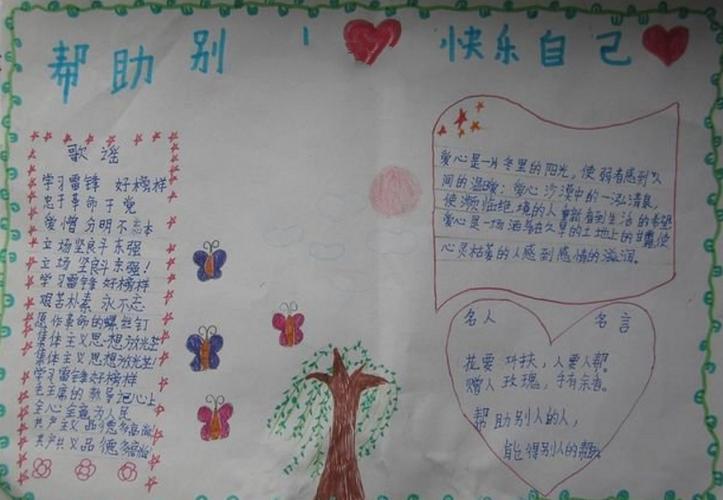 帮助别人 快乐自己
歌谣
学习雷锋 好榜样
忠于革命 于党
爱憎 分明不忘本
立场坚贞斗东强
立场 坚斗东强！
学习雷锋 好榜样
艰苦朴素 永不忘
愿作革命的螺丝钉
集体主义思想放光芒
集体主义思想放光芒
学习雷锋好榜样
毛主席的教导记心上
全心全意为人民
共产主义品德多
共产主义品德多
爱心是一片冬里的阳光，使弱者感到人
间的温暖；爱心沙漠中的一泓清泉，
使濒临绝境的人重新看到生活的希望
爱心是一场洒落在久旱的土地上的甘霖，使
心灵枯萎的人感到感情的滋润。
名人 名言
花要叶扶，人要人帮。
赠人玫瑰，手有余香。
帮助别人的人，
能得别人的帮助